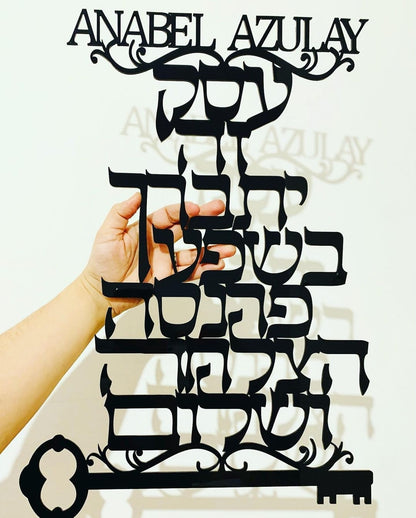 ANABEL AZULAY
עסק
זה
יתברך
בשפע
פרנסה
הצלחה
ושלום